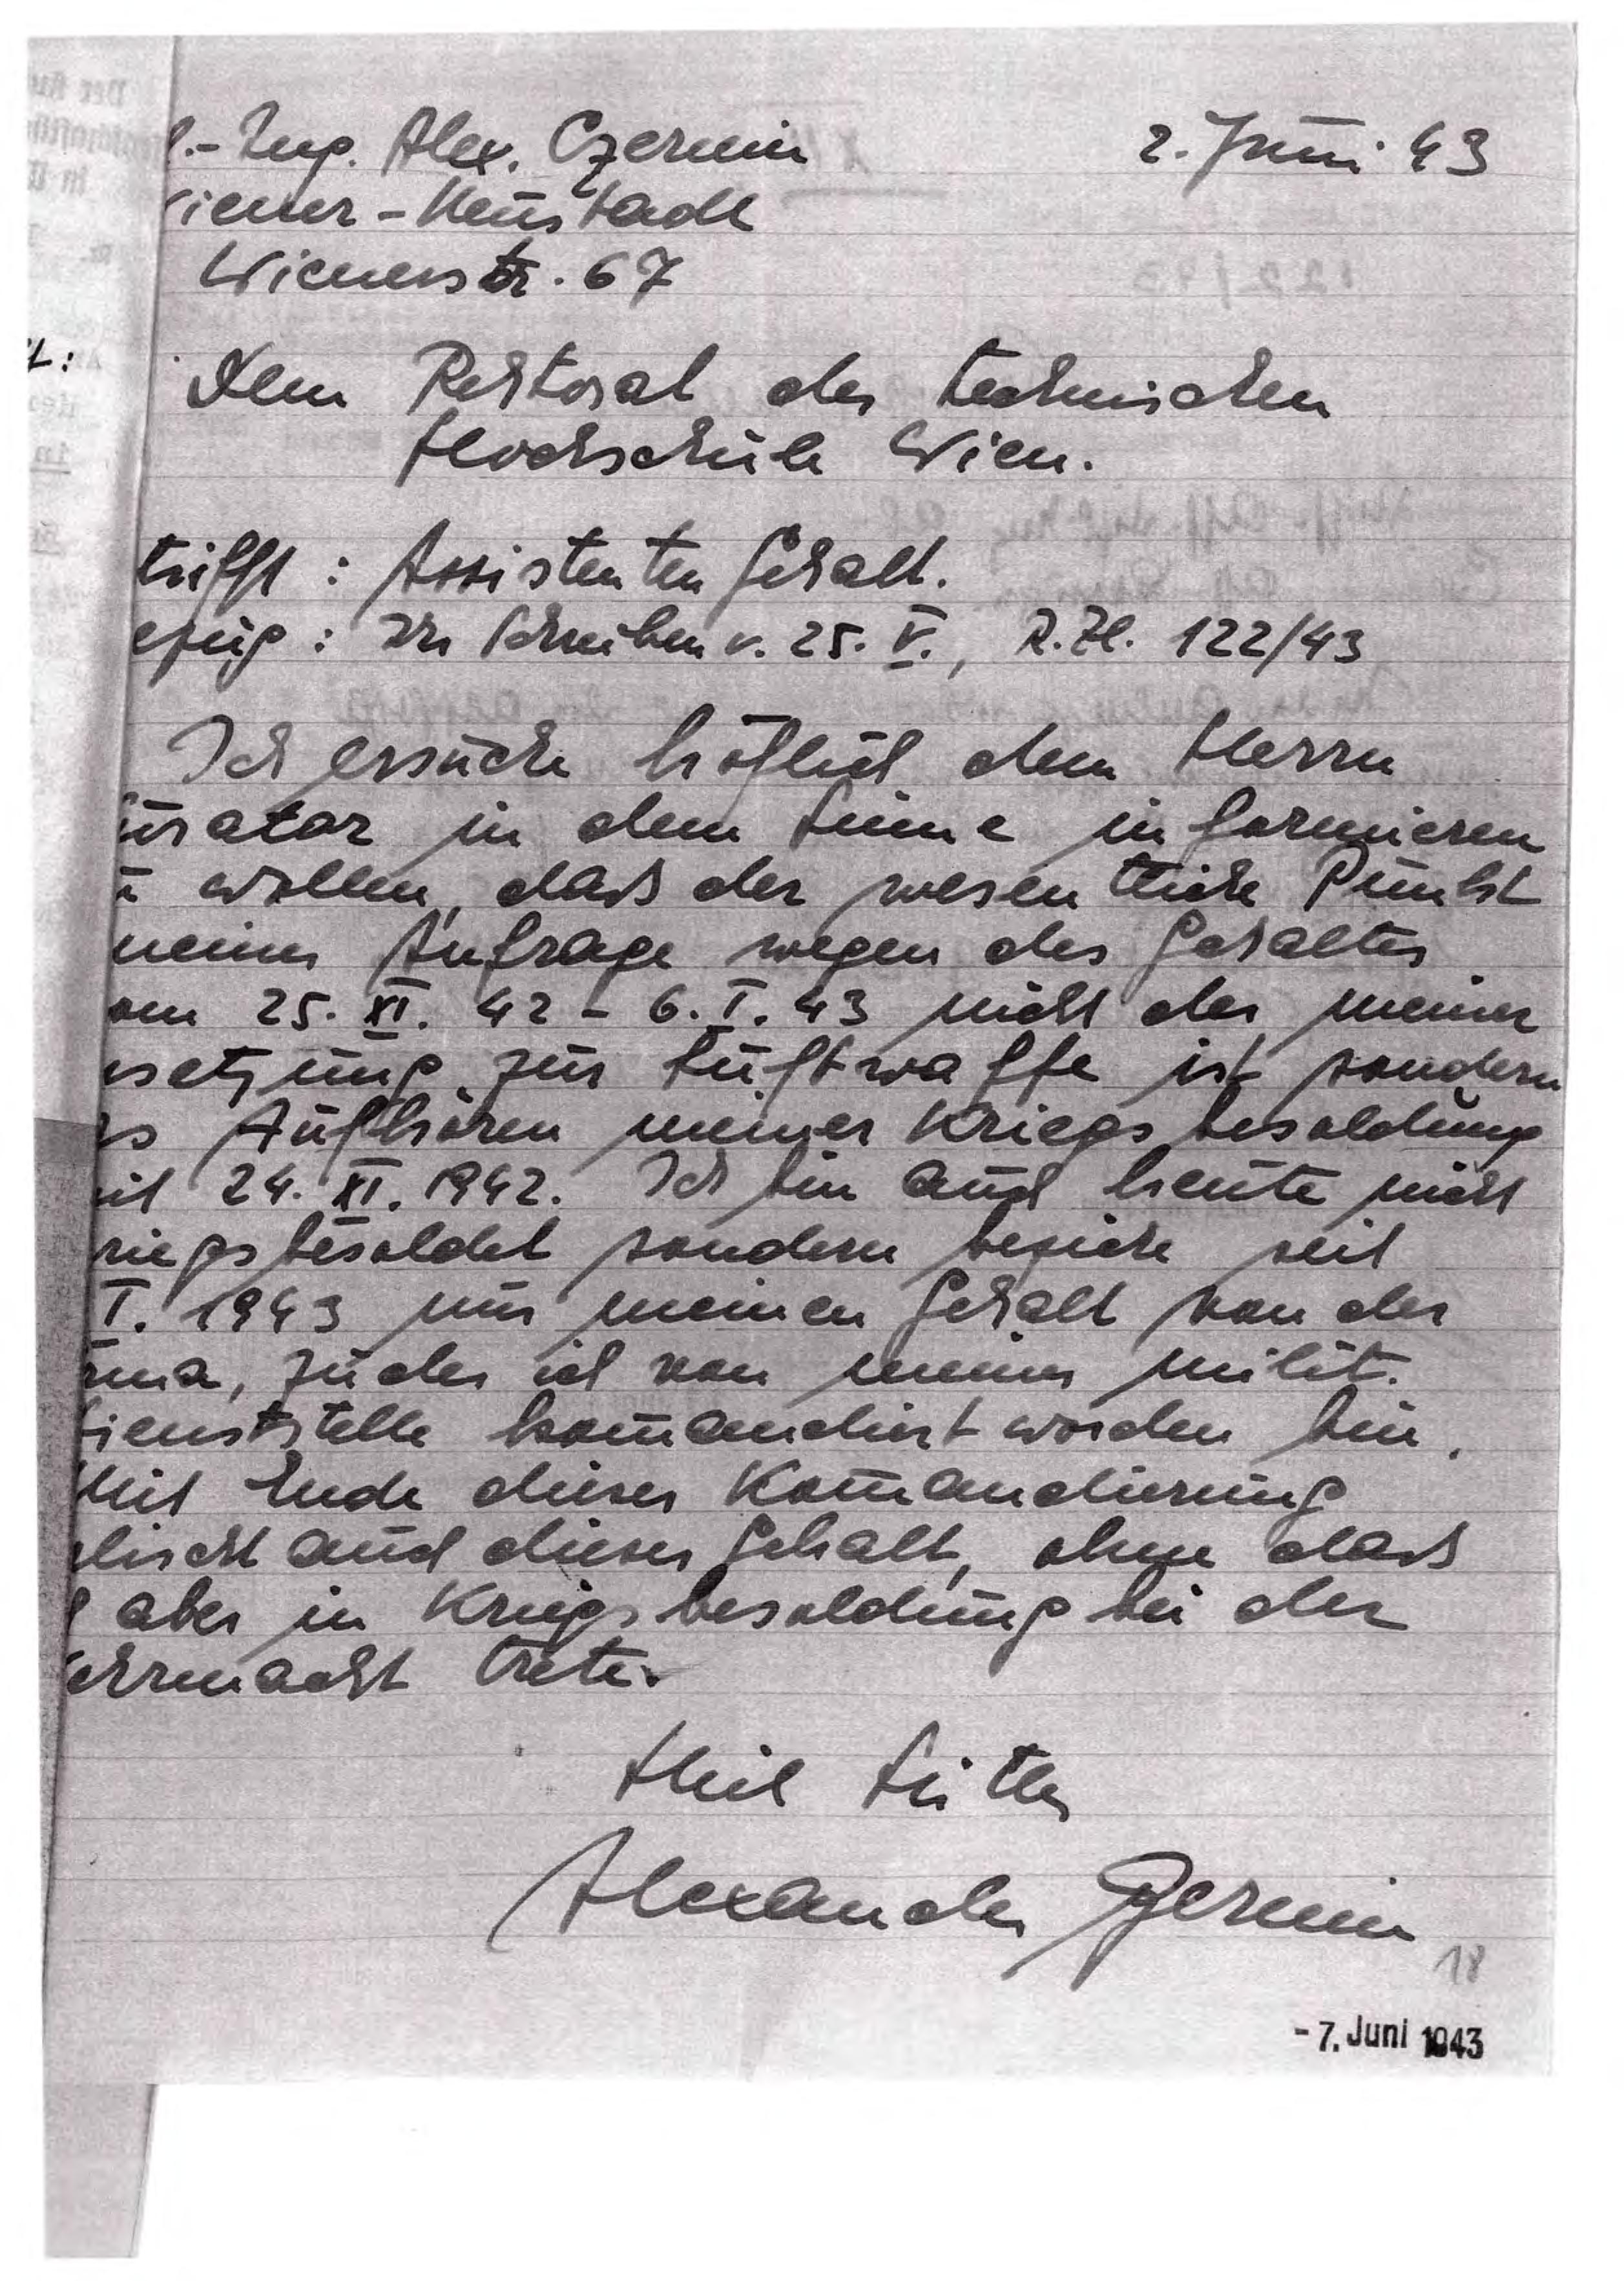 l.-Ing. Alex. Czernin 2. Juni 43
iener-Neustadt
Wienerstr. 67
Dem Rektorat der technischen
Hochschule Wien.
trifft: Assistenten Gehalt.
ezug: Ihr Schreiben v. 25. V., R.Zl. 122/43
Ich ersuche höflich dem Herrn
urator in dem Sinne informieren
u wollen, dass der wesentliche Punkt
meiner Anfrage wegen des Gehaltes
om 25. XI. 42 - 6. I. 43 nicht der meiner
rsetzung zur Luftwaffe ist sondern
as Aufhören meiner Kriegsbesoldung
mit 24. XI. 1942. Ich bin auch heute nicht
riegsbesoldet sondern beziehe seit
I. 1943 nur meinen Gehalt von der
rma, zu der ich von meiner milit.
ienststelle kom̄andiert worden bin.
Mit Ende dieser Kom̄andierung
lischt auch dieser Gehalt, ohne dass
h aber in Kriegsbesoldung bei der
ehrmacht trete.
Heil Hitler
Alexander Czernin
18
- 7. Juni 1943